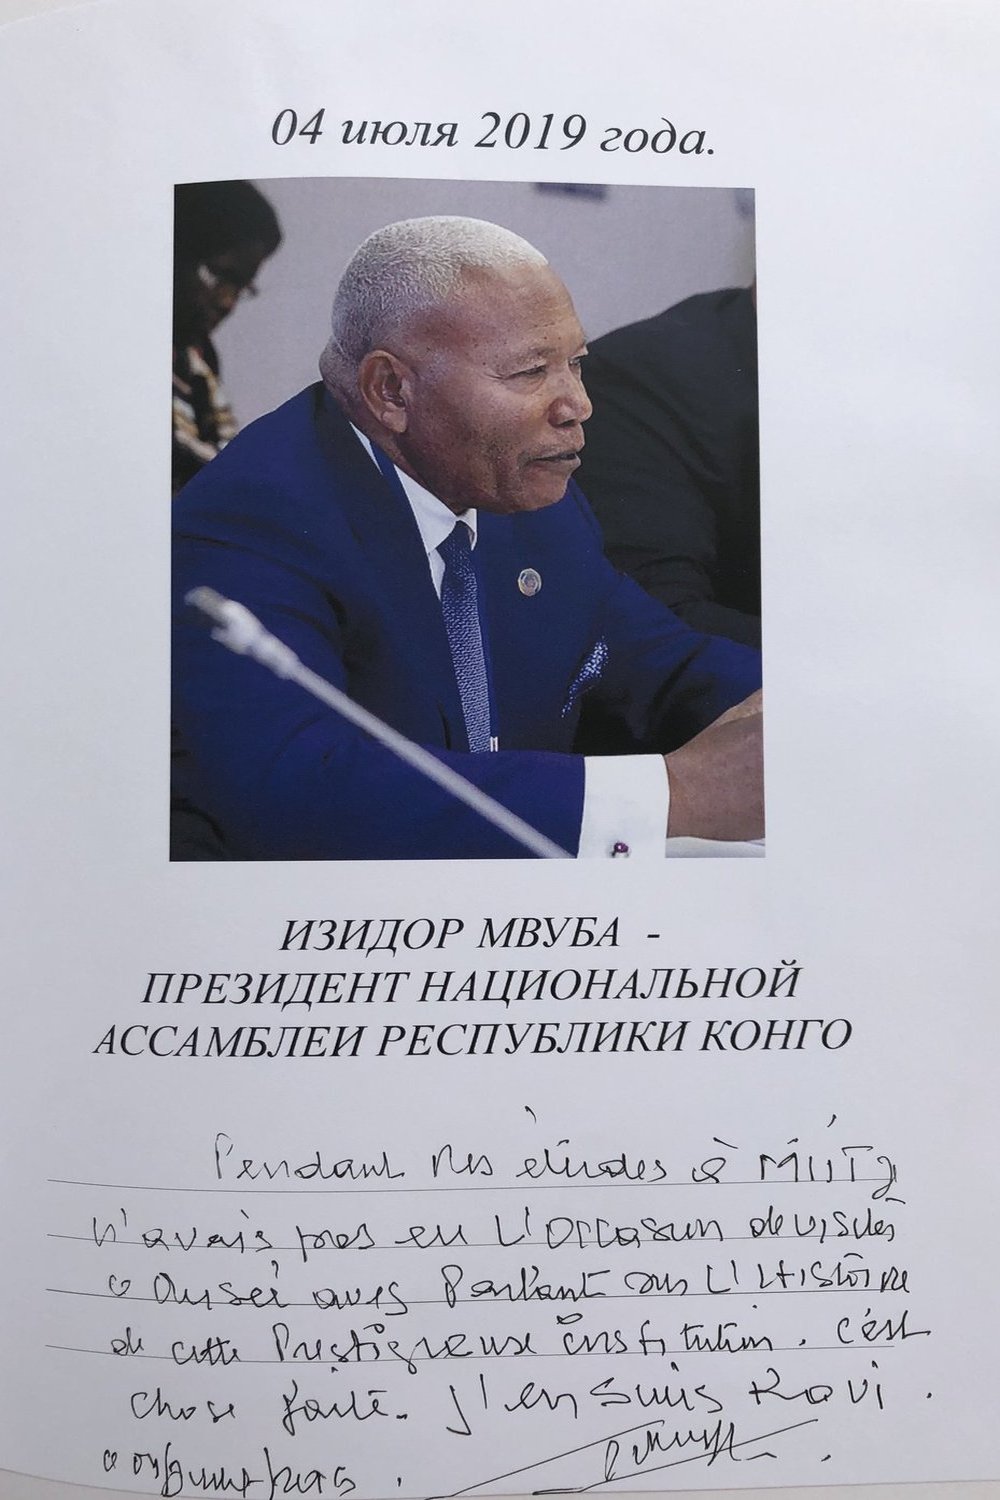 04 июля 2019 года.
ИЗИДОР МВУБА -
ПРЕЗИДЕНТ НАЦИОНАЛЬНОЙ
АССАМБЛЕИ РЕСПУБЛИКИ КОНГО
Pendant mes études à
n'avais pas eu l'occasion de visiter
Parlant sur l'Histoire
de cette Prestigieuse institution. C'est
chose faite. J'en suis Ravi.